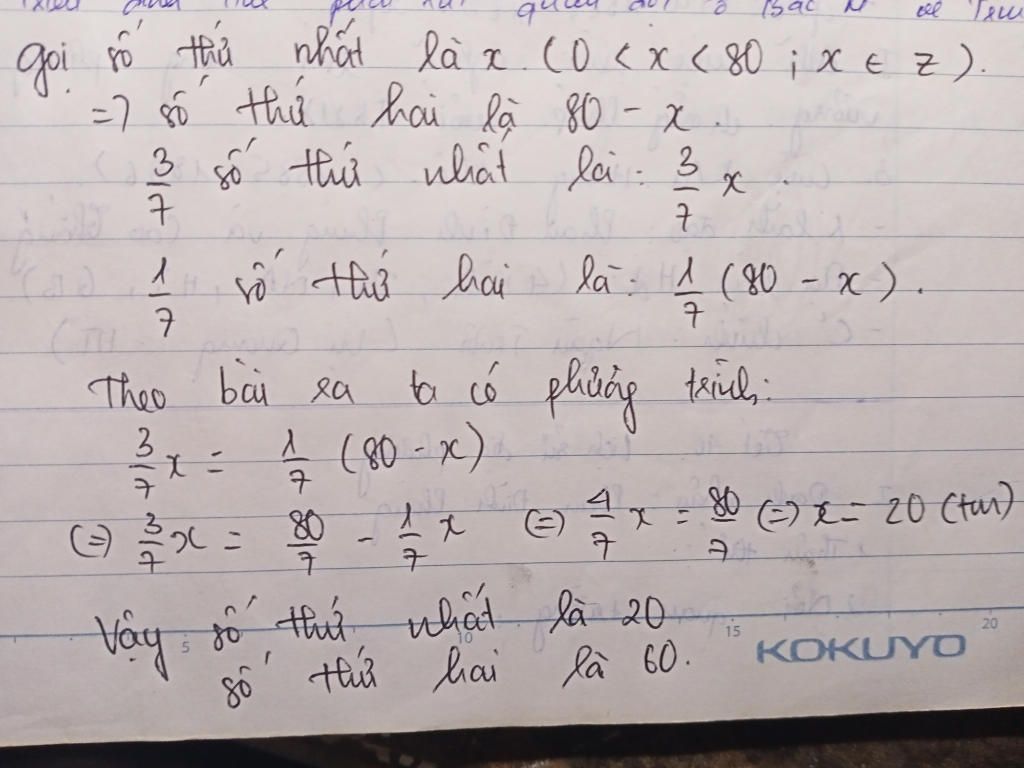 gọi số thứ nhất là x (0 < x < 80 ; x ∈ z).
=> số thứ hai là 80 - x
3/7 số thứ nhất là: 3/7 x.
1/7 số thứ hai là: 1/7 (80 - x).
Theo bài ra ta có phương trình:
3/7 x = 1/7 (80 - x)
(=) 3/7 x = 80/7 - 1/7 x (=) 4/7 x = 80/7 (=) x = 20 (tm)
Vậy số thứ nhất là 20
số thứ hai là 60.
5 10 15 KOKUYO 20